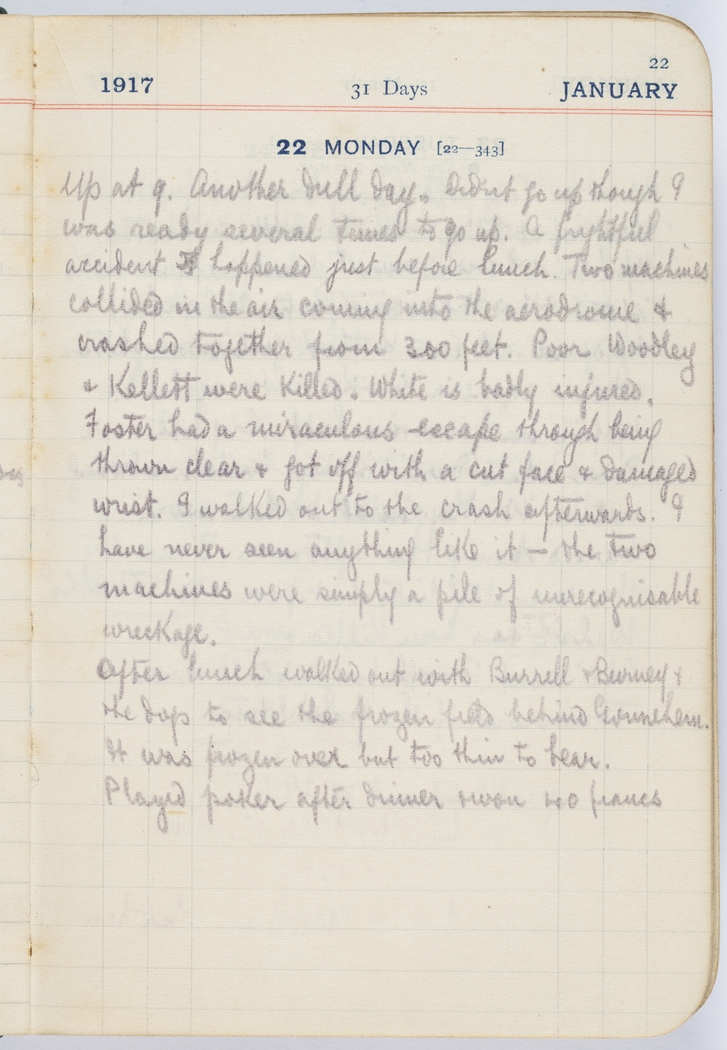 22
1917 31 Days JANUARY
22 MONDAY [22—343]
Up at 9. Another dull day. Didn't go up though I
was ready several times to go up. A frightful
accident happened just before lunch. Two machines
collided in the air coming into the aerodrome &
crashed together from 300 feet. Poor Woodley
& Kellett were killed. White is badly injured.
Foster had a miraculous escape through being
thrown clear & got off with a cut face & damaged
wrist. I walked out to the crash afterwards. I
have never seen anything like it — the two
machines were simply a pile of unrecognisable
wreckage.
After lunch walked out with Burrell & Burney &
the dogs to see the frozen field behind Gonnehem.
It was frozen over but too thin to bear.
Played poker after dinner & won 40 francs